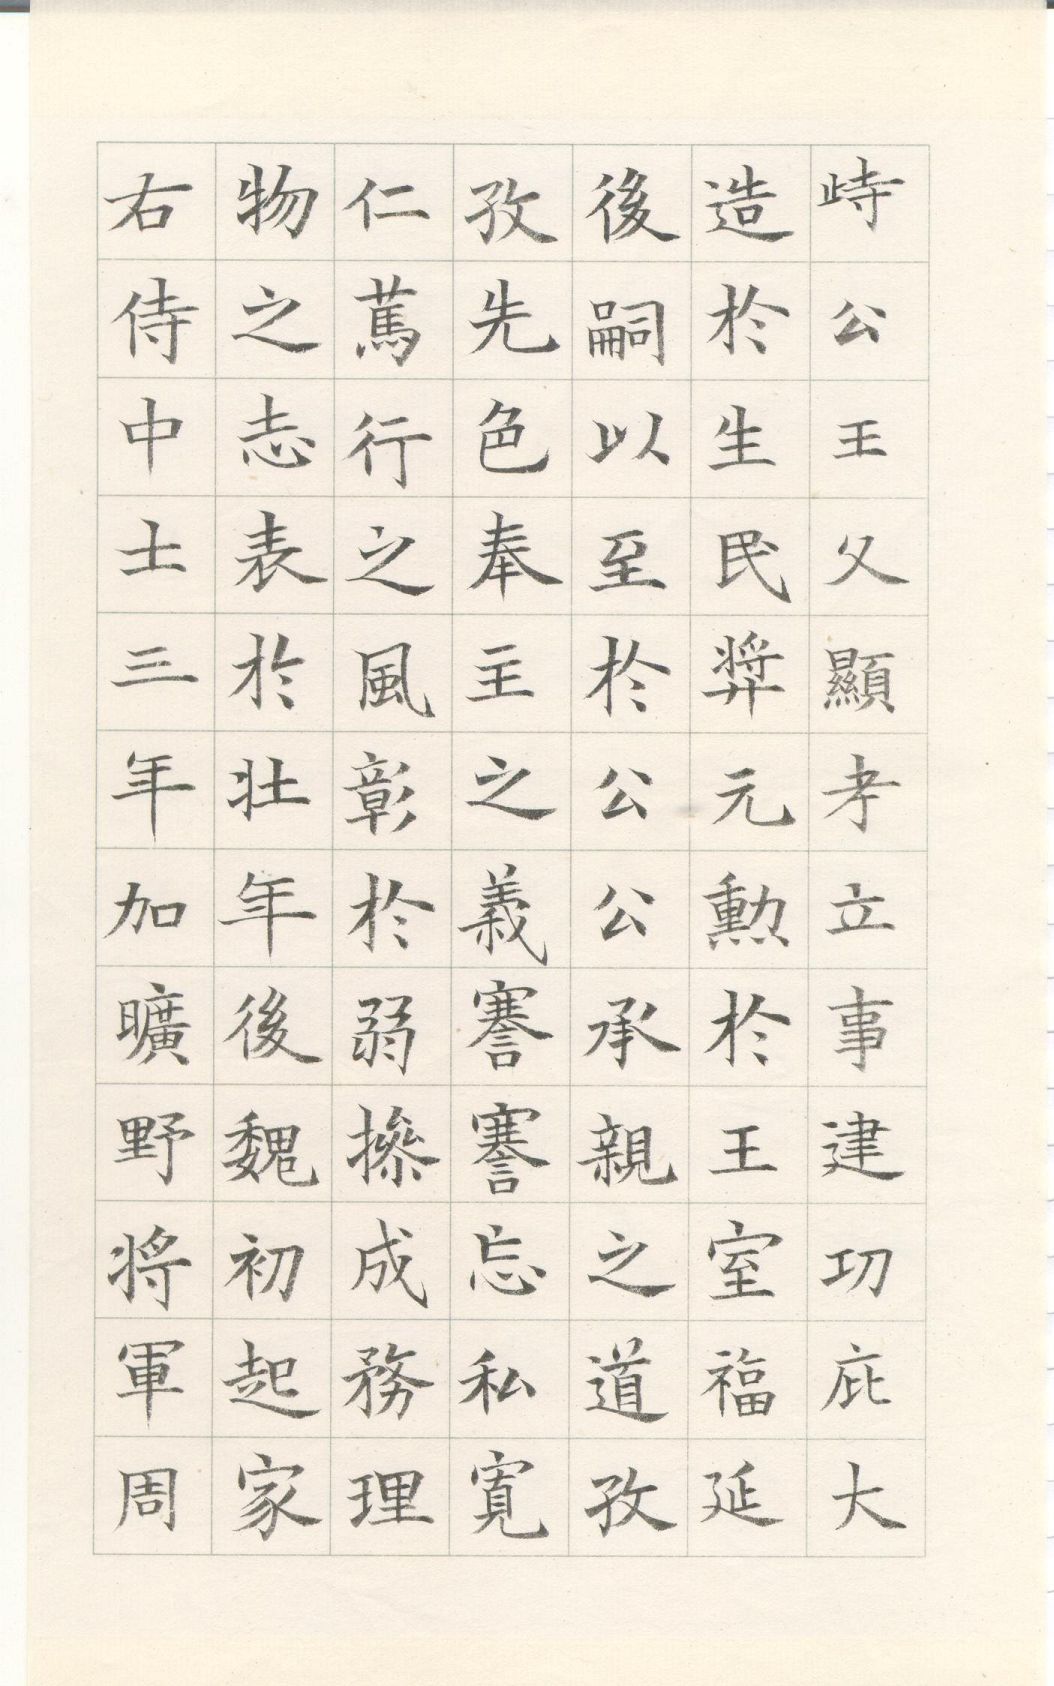 峙公王父顯考立事建功庇大
造於生民弉元勲於王室福延
後嗣以至於公公承親之道孜
孜先色奉主之義謇謇忘私寬
仁蔿行之風彰於弱操成務理
物之志表於壮年後魏初起家
右侍中士三年加曠野将軍周